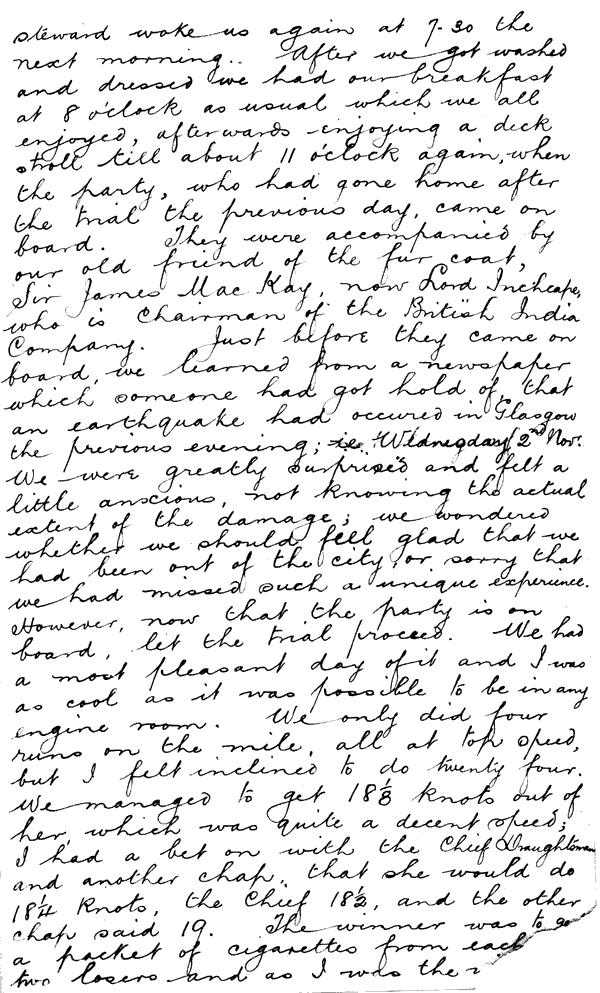 steward woke us again at 7.30 the
next morning.. After we got washed
and dressed we had our breakfast
at 8 o'clock as usual which we all
enjoyed, afterwards enjoying a deck
stroll till about 11 o'clock again, when
the party, who had gone home after
the trial the previous day, came on
board. They were accompanied by
our old friend of the fur coat,
Sir James MacKay, now Lord Inchcape,
who is Chairman of the British India
Company. Just before they came on
board, we learned from a newspaper
which someone had got hold of, that
an earthquake had occured in Glasgow
the previous evening; i.e. Wednesday 2nd Nov.
We were greatly surprised and felt a
little anxious, not knowing the actual
extent of the damage; we wondered
whether we should feel glad that we
had been out of the city, or sorry that
we had missed such a unique experience.
However, now that the party is on
board, let the trial proceed. We had
a most pleasant day of it and I was
as cool as it was possible to be in any
engine room. We only did four
runs on the mile, all at top speed,
but I felt inclined to do twenty four.
We managed to get 18⅛ knots out of
her, which was quite a decent speed;
I had a bet on with the Chief Draughtsman
and another chap, that she would do
18¼ Knots, the Chief 18½, and the other
chap said 19. The winner was to go
a packet of cigarettes from each
two losers and as I was the